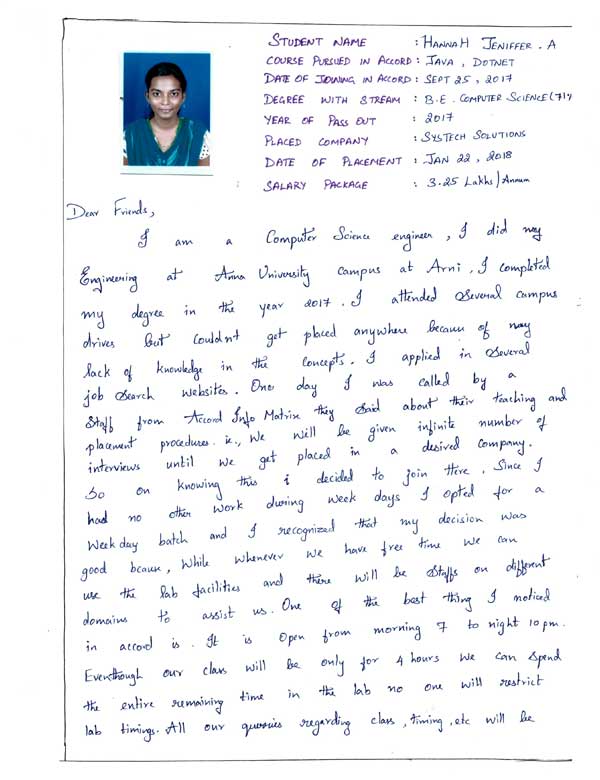 STUDENT NAME : HANNAH JENIFFER . A
COURSE PURSUED IN ACCORD : JAVA , DOTNET
DATE OF JOINING IN ACCORD : SEPT 25 , 2017
DEGREE WITH STREAM : B.E. COMPUTER SCIENCE (71%
YEAR OF PASS OUT : 2017
PLACED COMPANY : SYSTECH SOLUTIONS
DATE OF PLACEMENT : JAN 22 , 2018
SALARY PACKAGE : 3.25 Lakhs / Annum
Dear Friends,
I am a Computer Science engineer , I did my
Engineering at Anna University campus at Arni . I completed
my degree in the year 2017 . I attended Several campus
drives but couldn't get placed anywhere because of my
lack of knowledge in the concepts . I applied in Several
job Search websites . One day I was called by a
Staff from Accord Info Matrix they said about their teaching and
placement procedures ie., We will be given infinite number of
interviews until we get placed in a desired company .
So on knowing this i decided to join there . Since I
had no other work during week days I opted for a
Week day batch and I recognized that my decision was
good bcaux , While whenever we have free time we can
use the lab facilities and there will be Staffs on different
domains to assist us . One of the best thing I noticed
in accord is . It is Open from morning 7 to night 10 pm .
Eventhough our class will be only for 4 hours we can spend
the entire remaining time in the lab no one will restrict
lab timings . All our queries regarding class , timing , etc will be